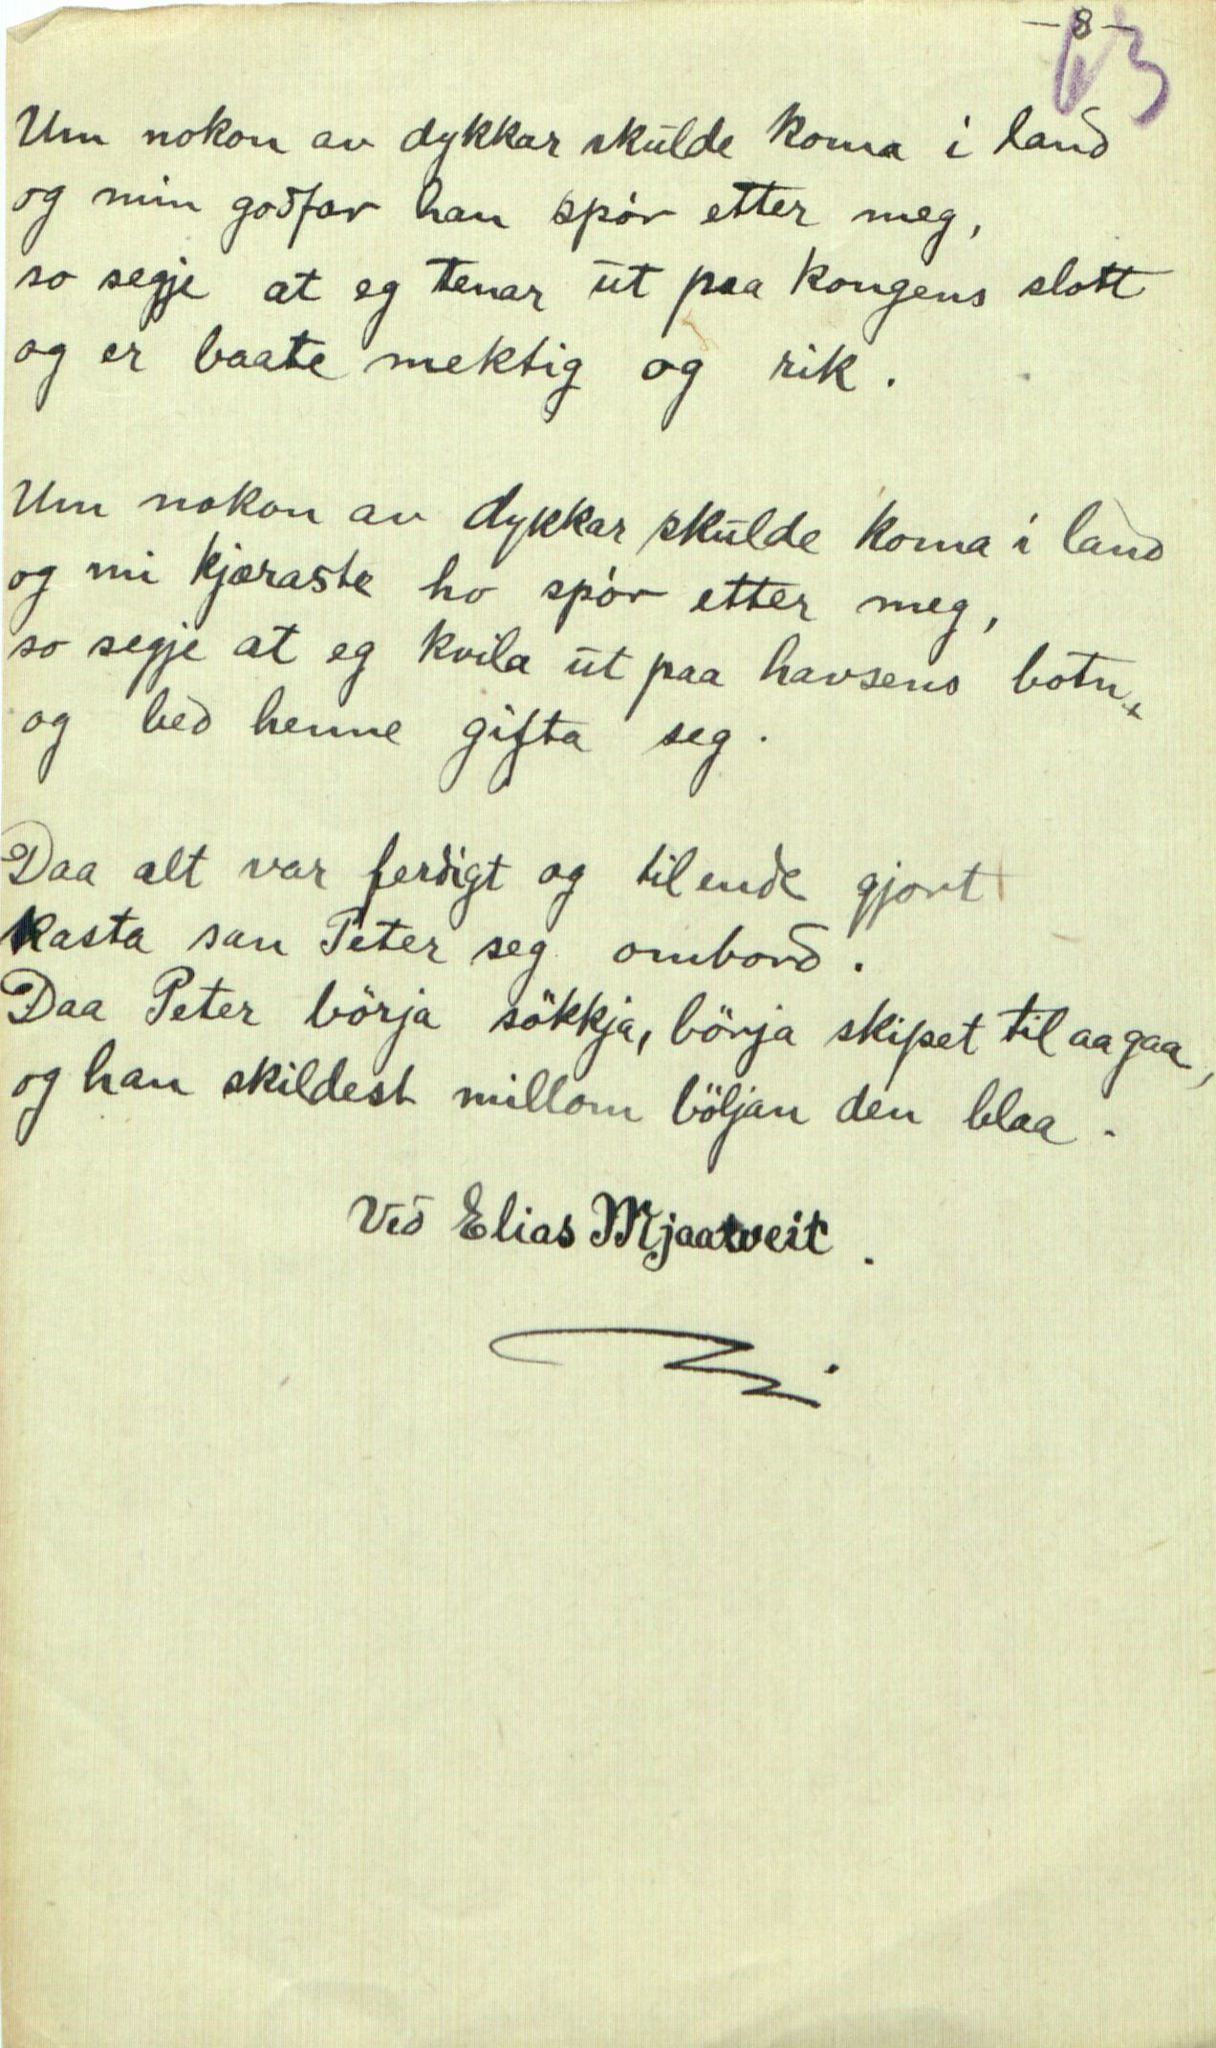 - 8 -
Um nokon av dykkar skulde koma i land
og min godfar han spör etter meg,
so segje at eg tenar ut paa kongens slott
og er baate mektig og rik.
Um nokon av dykkar skulde koma i land
og mi kjæraste ho spör etter meg,
so segje at eg kvila ut paa havsens botn,
og bed henne gifta seg.
Daa alt var ferdigt og til ende gjort
kasta san Peter seg ombord.
Daa Peter börja sökkja, börja skipet til aa gaa,
og han skildest millom böljan den blaa.
Ved Elias Mjaatveit.